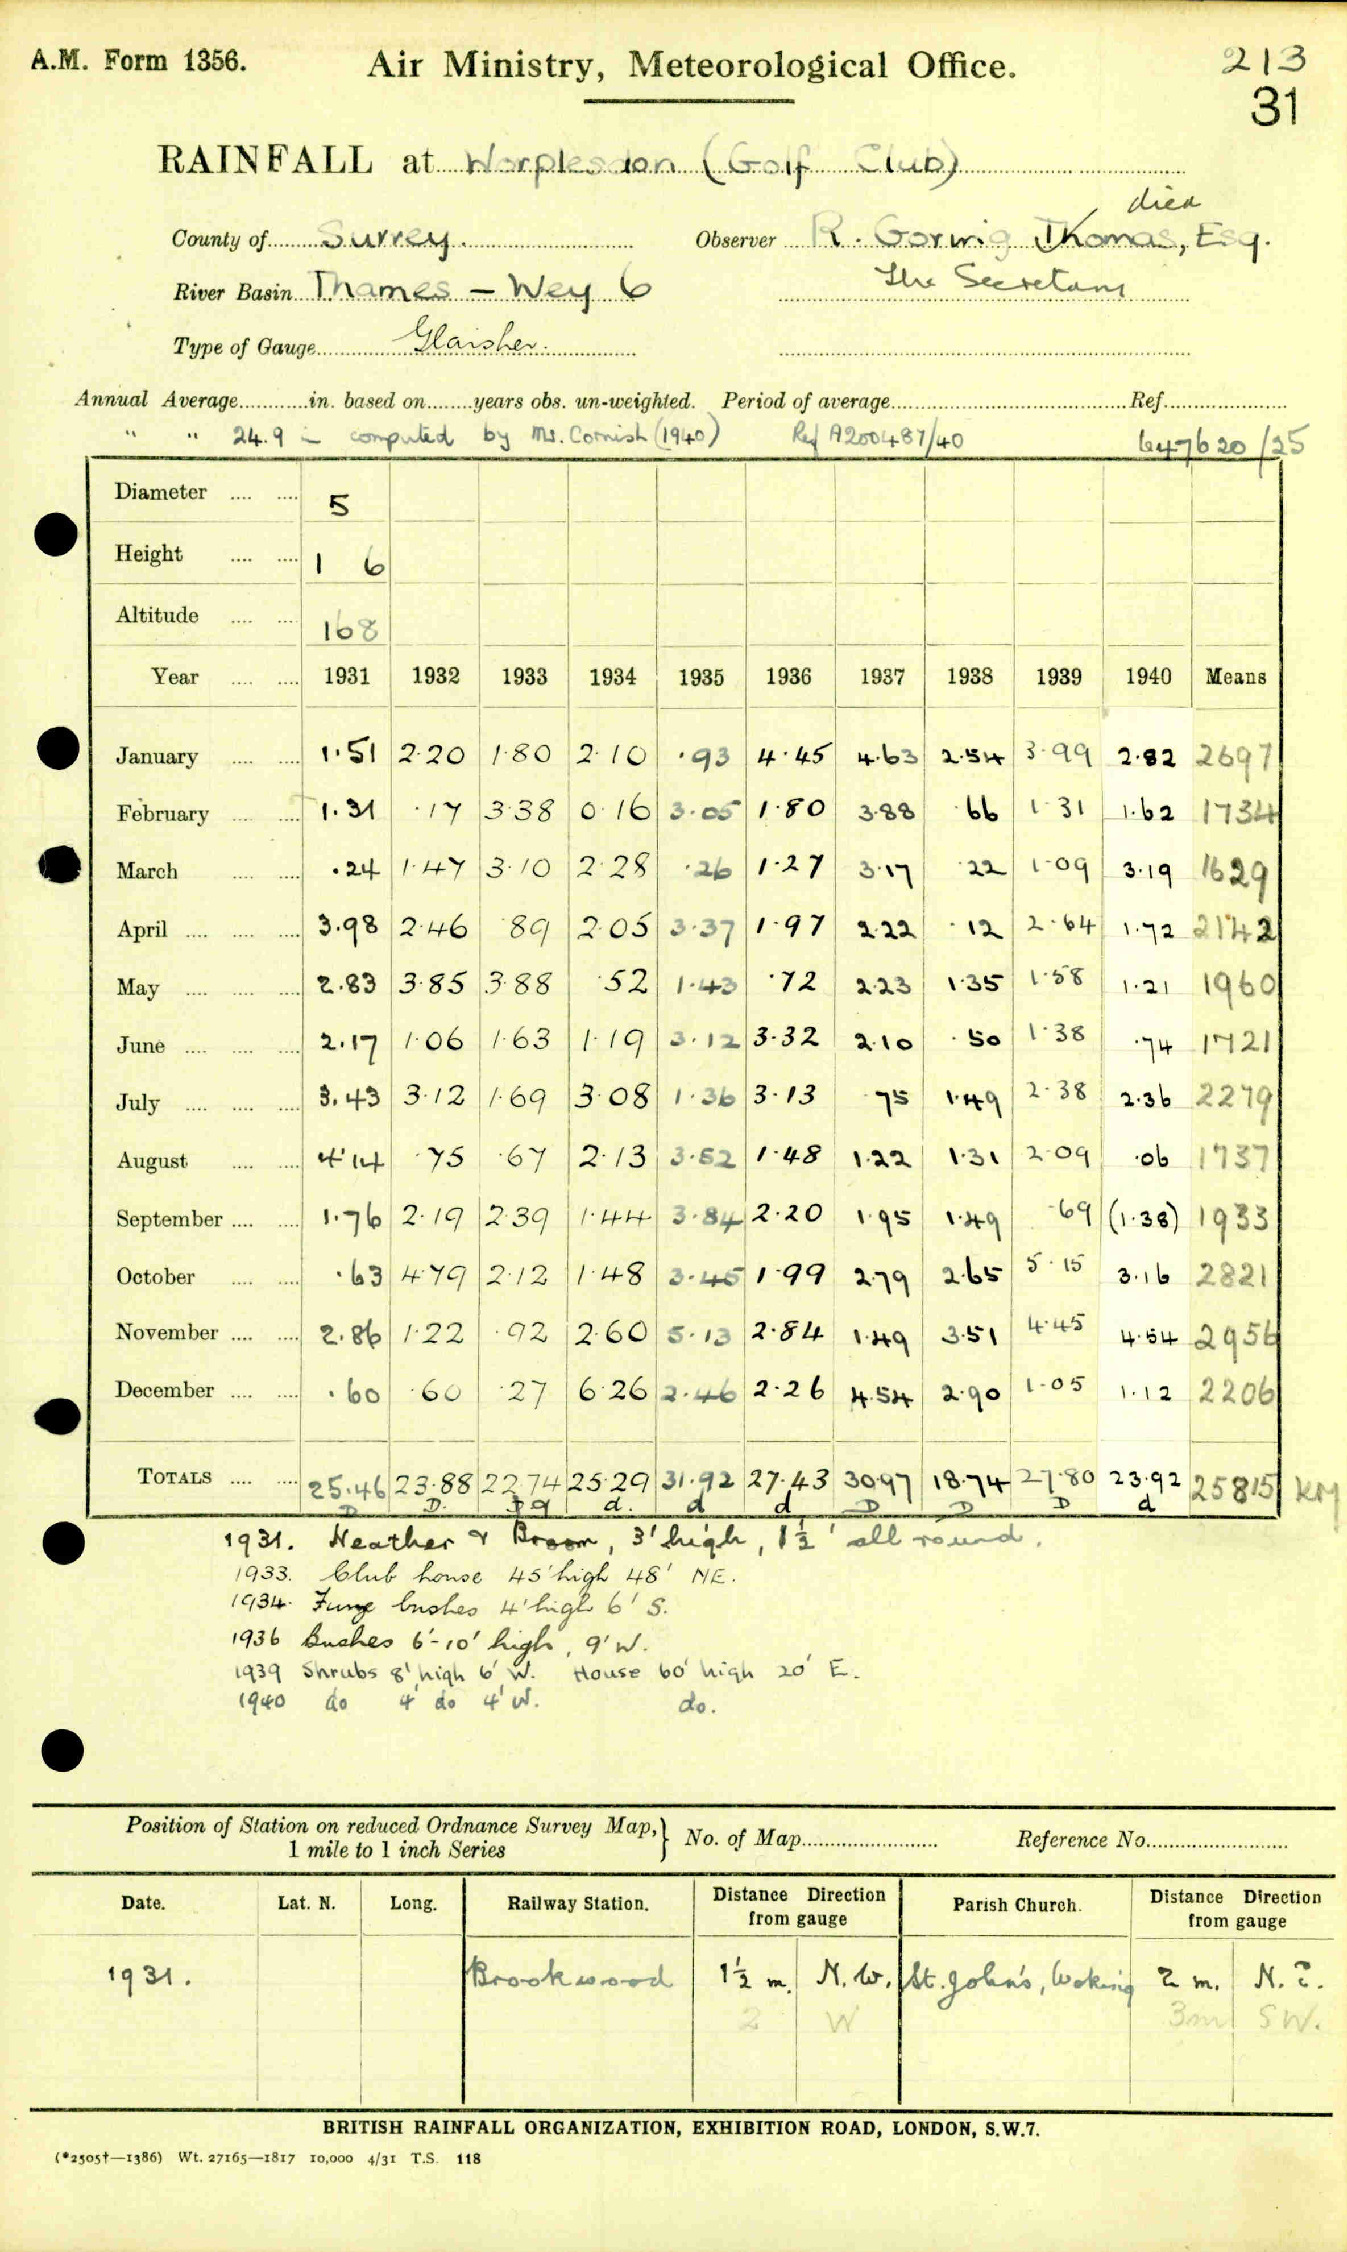 A.M. Form 1356. Air Ministry, Meteorological Office. 213
31
RAINFALL at Worplesdon (Golf Club)
died
County of Surrey. Observer R. Goring Thomas, Esq.
River Basin Thames - Wey 6 The Secretary
Type of Gauge Glaisher.
Annual Average in. based on years obs. un-weighted. Period of average Ref.
" " 24.9 in computed by Ms. Cornish (1940) Ref A200487/40 647620/25
Diameter 5
Height 1 6
Altitude 168
Year 1931 1932 1933 1934 1935 1936 1937 1938 1939 1940 Means
January 1.51 2.20 1.80 2.10 .93 4.45 4.63 2.54 3.99 2.82 2697
February 1.31 .17 3.38 0.16 3.05 1.80 3.88 .66 1.31 1.62 1734
March .24 1.47 3.10 2.28 .26 1.27 3.17 .22 1.09 3.19 1629
April 3.98 2.46 .89 2.05 3.37 1.97 2.22 .12 2.64 1.72 2142
May 2.83 3.85 3.88 .52 1.43 .72 2.23 1.35 1.58 1.21 1960
June 2.17 1.06 1.63 1.19 3.12 3.32 2.10 .50 1.38 .74 1721
July 3.43 3.12 1.69 3.08 1.36 3.13 .75 1.49 2.38 2.36 2279
August 4.14 .75 .67 2.13 3.52 1.48 1.22 1.31 2.09 .06 1737
September 1.76 2.19 2.39 1.44 3.84 2.20 1.95 1.49 .69 (1.38) 1933
October .63 4.79 2.12 1.48 3.45 1.99 2.79 2.65 5.15 3.16 2821
November 2.86 1.22 .92 2.60 5.13 2.84 1.49 3.51 4.45 4.54 2956
December .60 .60 .27 6.26 2.46 2.26 4.54 2.90 1.05 1.12 2206
TOTALS 25.46 23.88 22.74 25.29 31.92 27.43 30.97 18.74 27.80 23.92 25815 KM
D D. d. d d D D D d
1931. Heather & Broom, 3' high, 1½' all round.
1933. Club house 45' high 48' NE.
1934. Furze bushes 4' high 6' S.
1936 Bushes 6'-10' high, 9' W.
1939 Shrubs 8' high 6' W. House 60' high 20' E.
1940 do 4' do 4' W. do.
Position of Station on reduced Ordnance Survey Map,} No. of Map Reference No.
1 mile to 1 inch Series
Date. Lat. N. Long. Railway Station. Distance Direction from gauge Parish Church. Distance Direction from gauge
1931. Brookwood 1½ m. N.W. St. John's, Woking 2 m. N.E.
2 W 3m SW.
BRITISH RAINFALL ORGANIZATION, EXHIBITION ROAD, LONDON, S.W.7.
(*2505†—1386) Wt. 27165—1817 10,000 4/31 T.S. 118